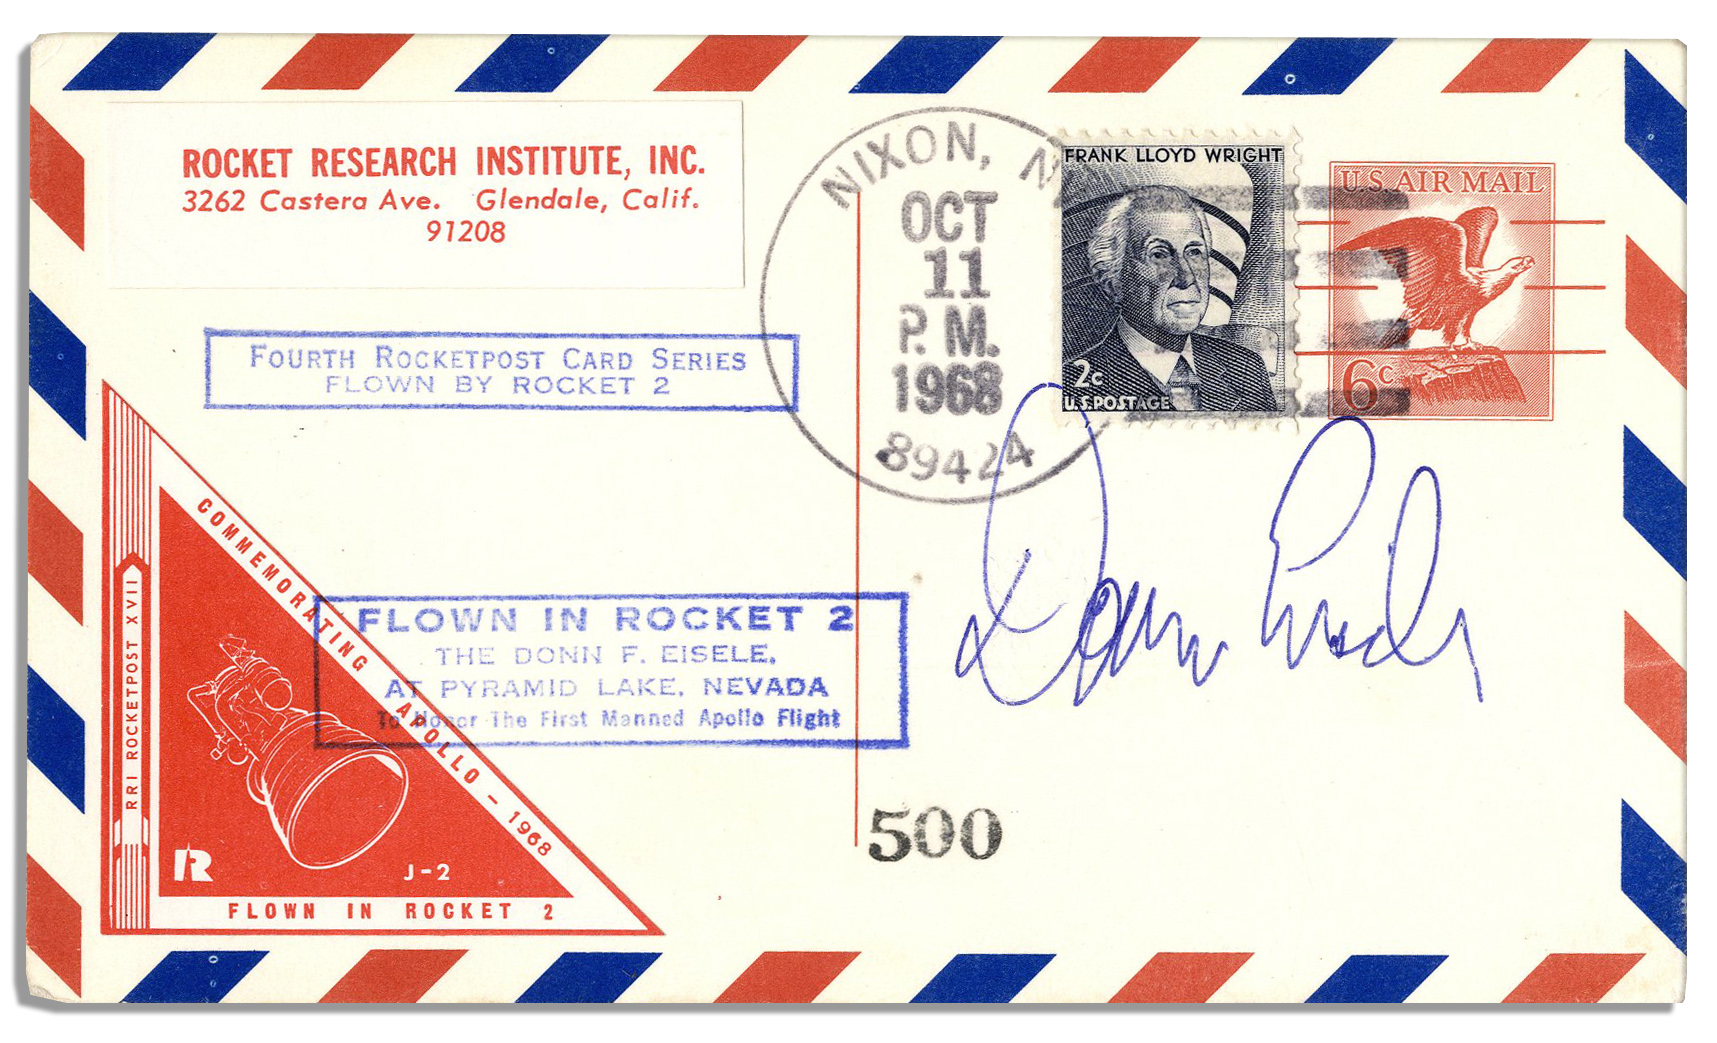 ROCKET RESEARCH INSTITUTE, INC.
3262 Castera Ave. Glendale, Calif.
91208
NIXON, N
OCT
11
P.M.
1968
89424
FRANK LLOYD WRIGHT
2c
U.S.POSTAGE
U.S. AIR MAIL
6c
FOURTH ROCKETPOST CARD SERIES
FLOWN BY ROCKET 2
FLOWN IN ROCKET 2
THE DONN F. EISELE,
AT PYRAMID LAKE, NEVADA
To Honor The First Manned Apollo Flight
COMMEMORATING APOLLO - 1968
RRI ROCKETPOST XVII
R
J-2
FLOWN IN ROCKET 2
Donn Eisele
500